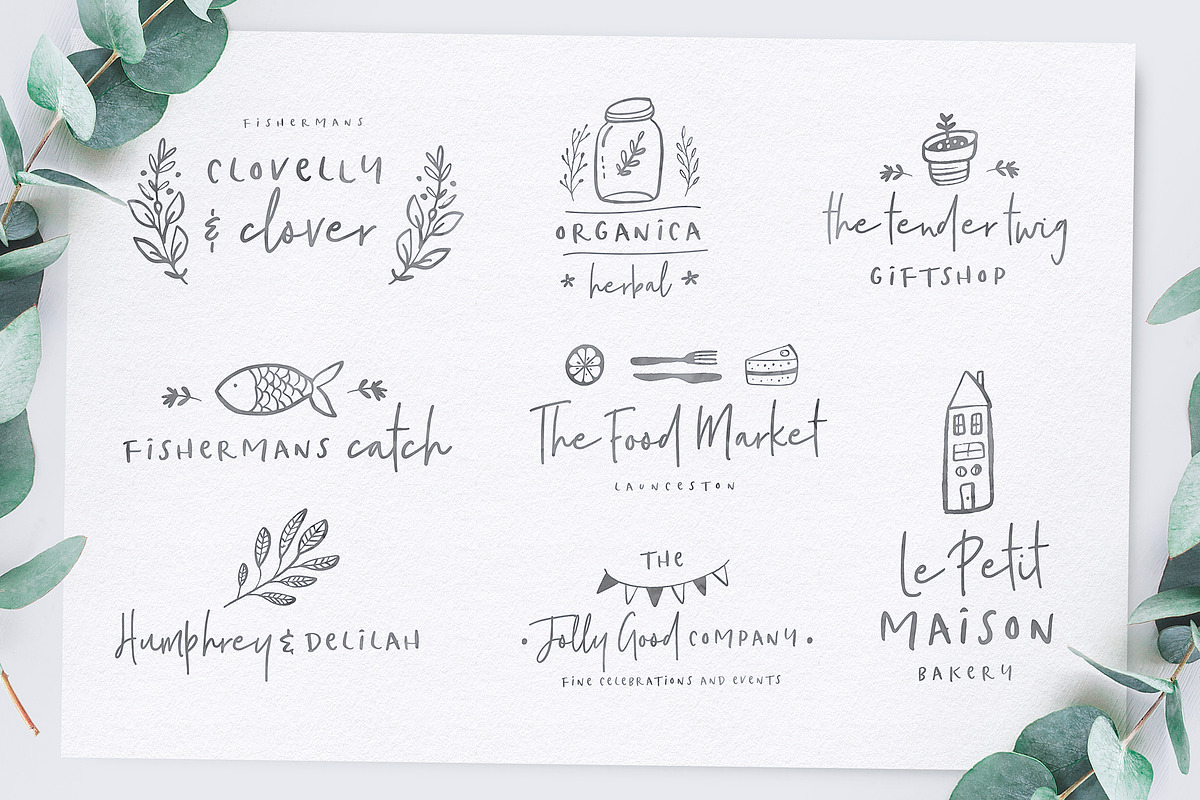 FISHERMANS
CLOVELLY
& clover
ORGANICA
* herbal *
the tender twig
GIFTSHOP
FISHERMANS catch
The Food Market
LAUNCESTON
Le Petit
MAISON
BAKERY
Humphrey & DELILAH
THE
• Jolly Good COMPANY •
FINE CELEBRATIONS AND EVENTS